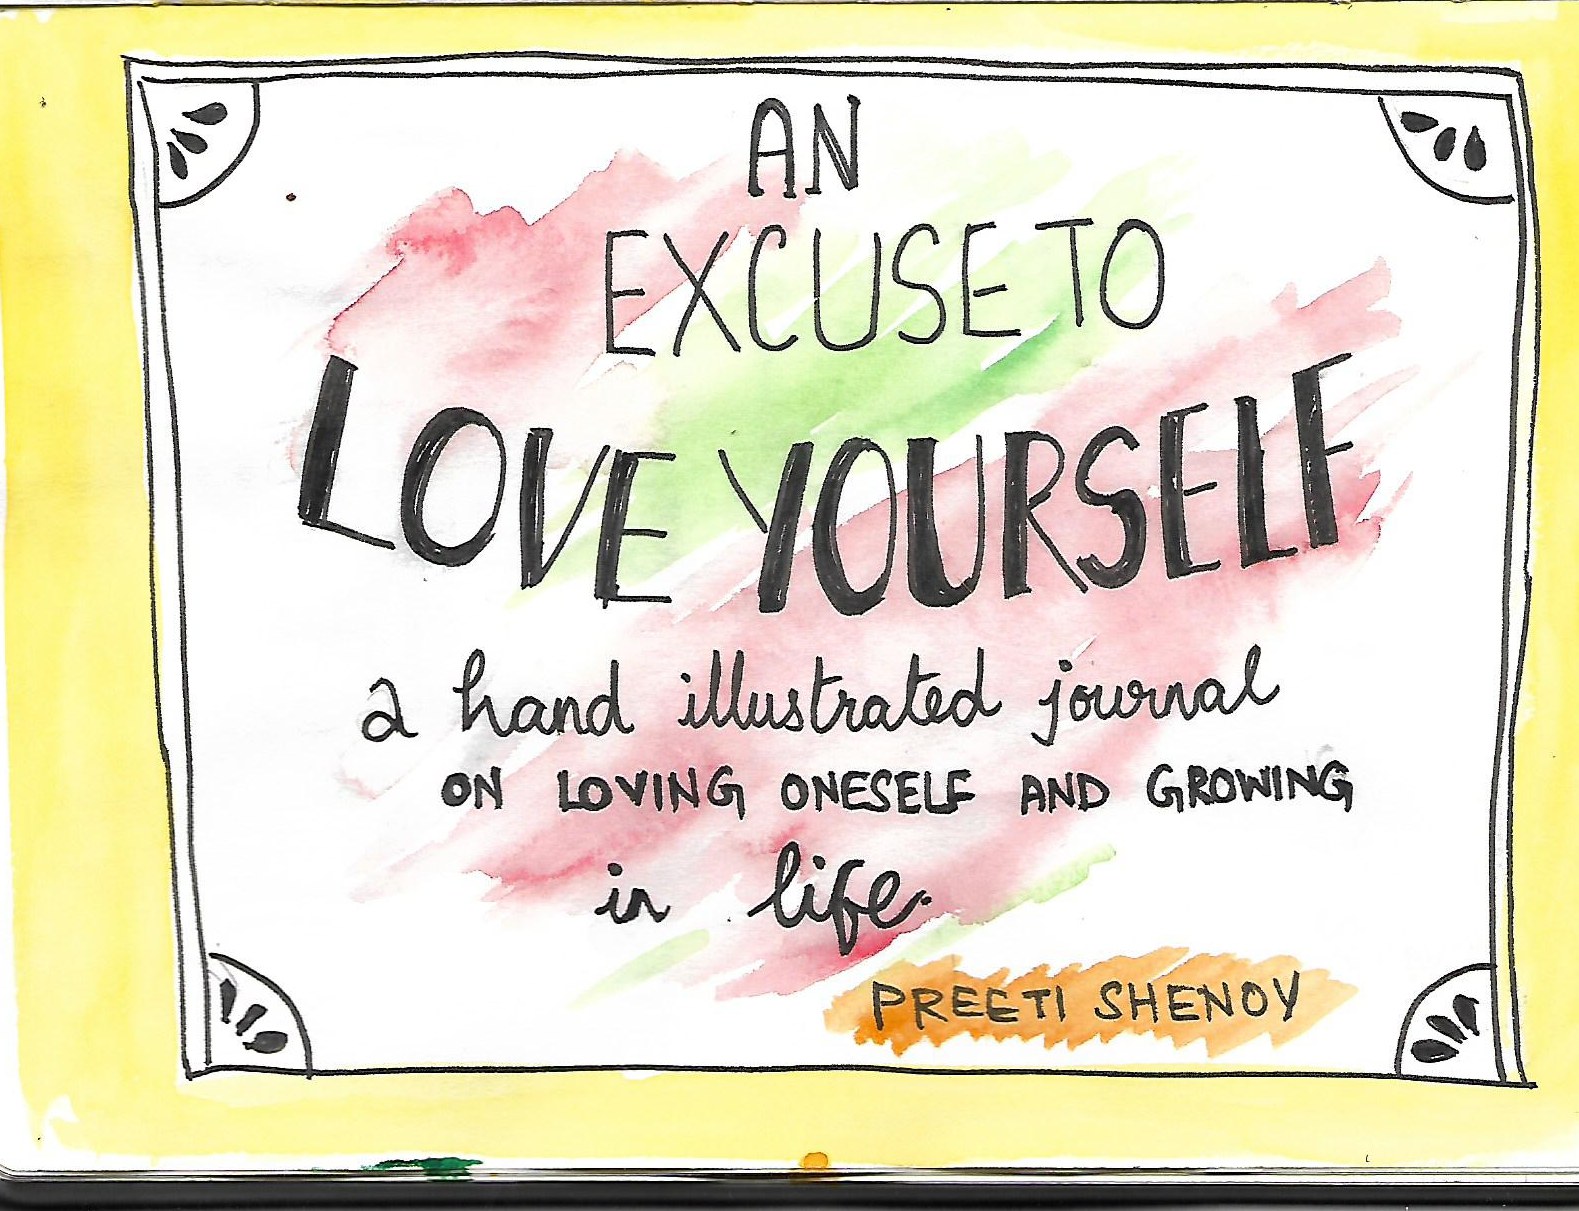 AN
EXCUSE TO
LOVE YOURSELF
a hand illustrated journal
ON LOVING ONESELF AND GROWING
in life.
PREETI SHENOY